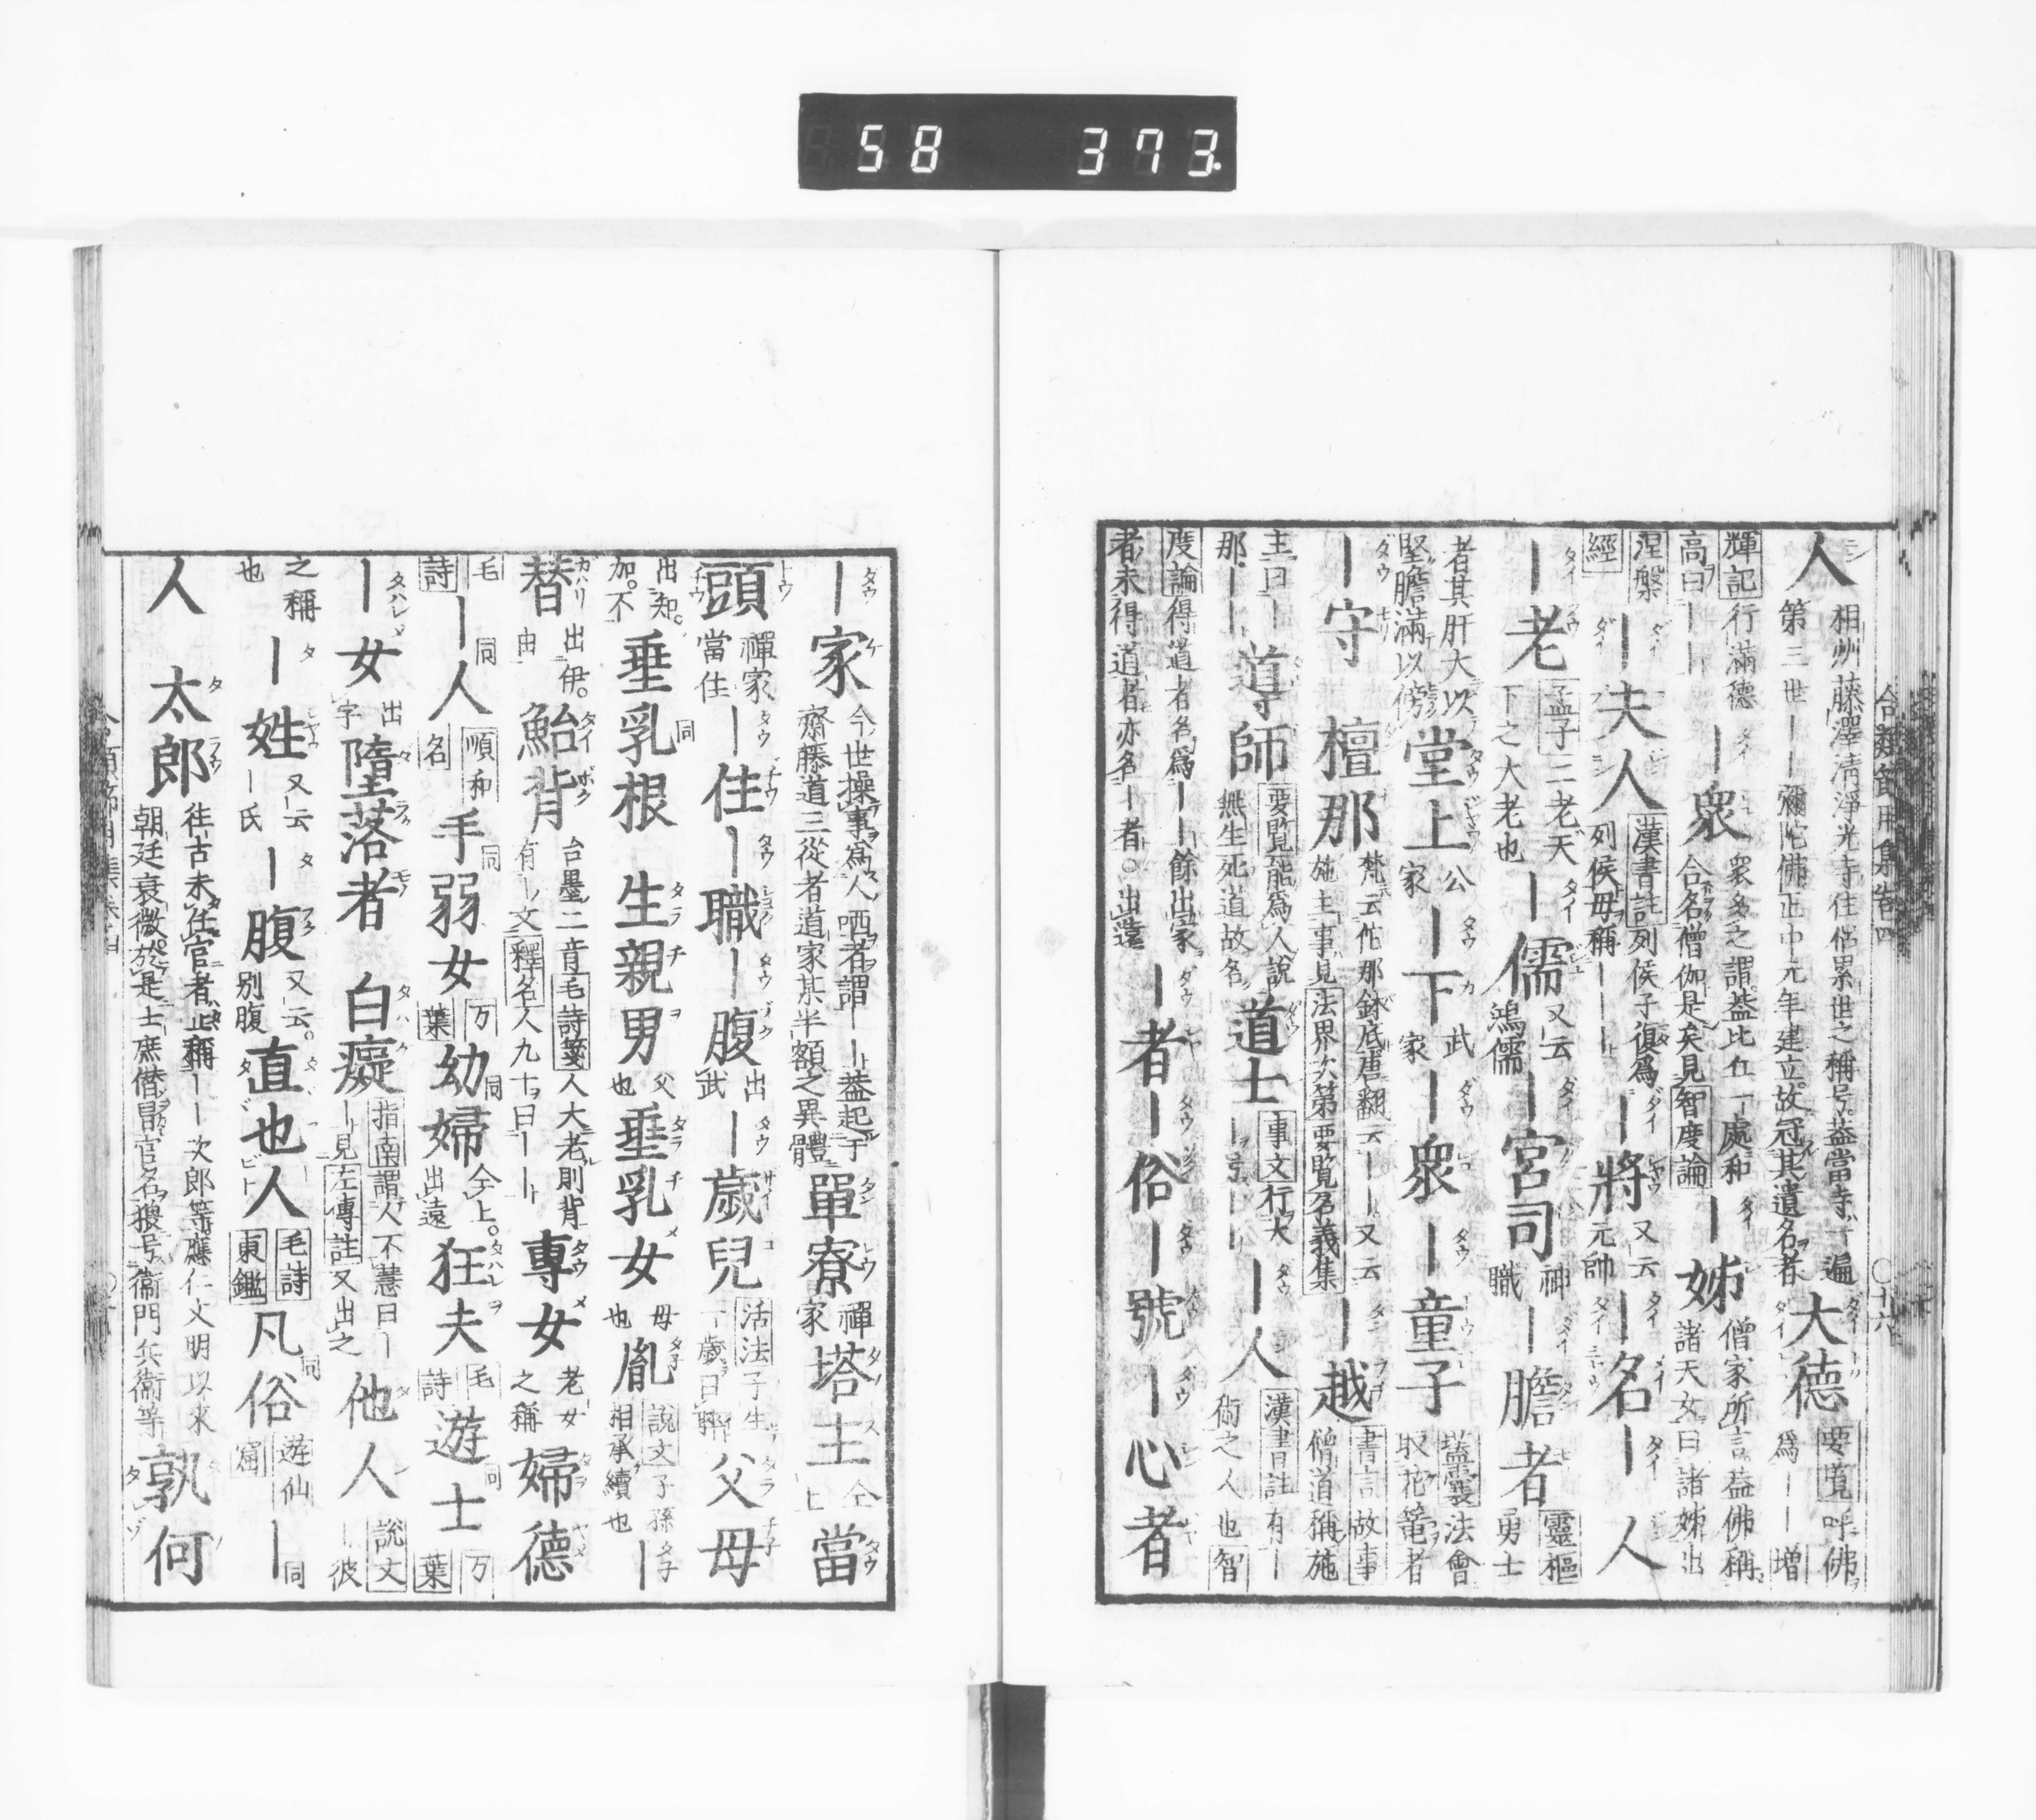 58 373.
合類節用集卷四
〇十六
人 相州藤澤清淨光寺住侶累世之稱号。蓋當寺一遍第三世――彌陀佛正中元年建立。故冠其遺名者 大德 要覽呼佛爲――增
輝記行滿德高曰―― ―衆 衆多之謂蓋比丘一處和合名僧伽是矣見智度論 ―姊 僧家所言。蓋佛稱諸天女曰諸姊出
涅槃經 ―夫人 漢書註列侯子復爲列侯母稱――― ―將 又云元帥 ―名―人
―老 孟子二老天下之大老也 ―儒 又云鴻儒 ―宮司 神職 ―膽者 靈樞勇士
者其肝大以堅膽滿以傍 堂上 公家 ―下 武家 ―衆 ―童子 壒囊法會取花篭者
―守 檀那 梵云佗那鉢底唐翻云――又云施主事見法界次第要覽名義集 ―越 書言故事僧道稱施
主曰―那―― 導師 要覽能爲人說無生死道故名 道士 事文行大―号―― ―人 漢書註有―術之人也智
度論得道者名爲――餘出家者未得道者亦名―者。出遠 ―者―俗―號―心者
―家 今世操事爲人哂者謂――蓋起于齋藤道三從者道家某半額之異體 單寮 禪家 塔主 仝上 當
頭 禪家當住 ―住―職―腹 出武 ―歲兒 活法子生一歲曰 父母
出知。加。不 垂乳根 同 生親男 父也 垂乳女 母也 胤 說文子孫相承續也 ―
替 出伊。由 鮐背 台墨二音毛詩箋人大老則背有―文釋名人九十曰―― 專女 老女之稱 婦德
毛詩 ―人 同 順和名 手弱女 同 万葉 幼婦 同 仝上。出遠 狂夫 毛詩 遊士 同 万葉
―女 出字 墮落者 白癡 指南謂人不慧曰―― 見左傳註又出之 他人 說文―彼
之稱也 ―姓 又云―氏 ―腹 又云。別腹 直也人 毛詩東鑑 凡俗 同 遊仙窟 ― 同
人 太郎 往古未任官者止稱――次郎等應仁文明以來朝廷衰微於是士庶僣冒官名猥号衞門兵衞等 孰何